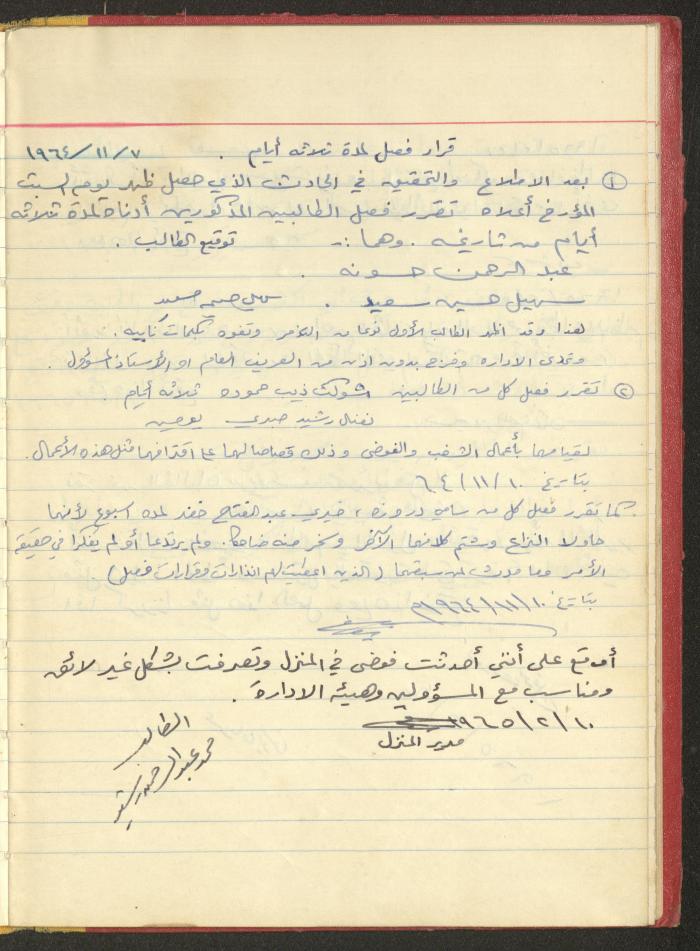 قرار فصل لمدة ثلاثه أيام . ٧/١١/١٩٦٤
① بعد الاطلاع والتحقيق في الحادث الذي حصل ظهر يوم السبت
المؤرخ أعلاه تقرر فصل الطالبين المذكورين أدناه لمدة ثلاثه
أيام من تاريخه . وهما :- توقيع الطالب .
عبد الرحمن حسونه .
سهيل حسين سعيد .
هذا وقد اظهر الطالب الأول نوعا من التذمر وتفوه بكلمات نابيه .
وتحدى الاداره وخرج بدون اذن من العريف العام او الأستاذ المسؤول .
② تقرر فصل كل من الطالبين شوكت ذيب حموده ثلاثه أيام
نضال رشيد صبري يومين
لقيامهما بأعمال الشغب والفوضى وذلك قصاصا لهما على اقترافهما مثل هذه الأعمال .
بتاريخ ١٠/١١/٦٤
كما تقرر فصل كل من سامي دروزه ، خيري عبد الفتاح لمدة اسبوع لأنهما
حاولا النزاع وشتم كلاهما الآخر وسخر منه ضاحكا. ولم يرتدعا أو لم يفكرا في حقيقة
الأمر وما حدث لمن سبقهما (الذين اعطيت لهم انذارات وقرارات فصل) .
بتاريخ ١٠/١١/١٩٦٤م
أوقع على أنني أحدثت فوضى في المنزل وتصرفت بشكل غير لائق
ومناسب مع المسؤولين وهيئة الادارة .
١٠/٢/١٩٦٥
مدير المنزل
الطالب
محمد عبد الرحمن